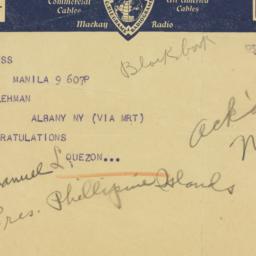 Commercial Cables
All America Cables
Mackay Radio
SS
Blackbook
MANILA 9 607P
EHMAN
ALBANY NY (VIA MRT)
Ack'
RATULATIONS
anuel L. QUEZON...
res. Phillipine Islands